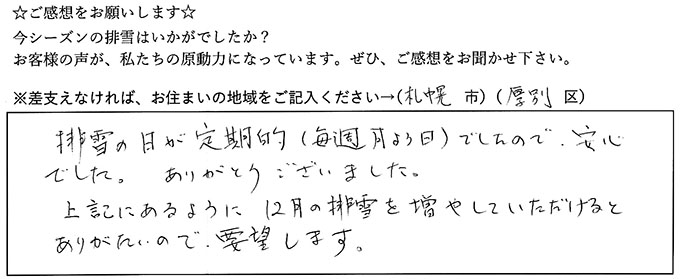 ☆ご感想をお願いします☆
今シーズンの排雪はいかがでしたか？
お客様の声が、私たちの原動力になっています。ぜひ、ご感想をお聞かせ下さい。
※差支えなければ、お住まいの地域をご記入ください→(札幌 市)(厚別 区)
排雪の日が定期的(毎週月よう日)でしたので、安心
でした。 ありがとうございました。
上記にあるように 12月の排雪を増やしていただけると
ありがたいので、要望します。